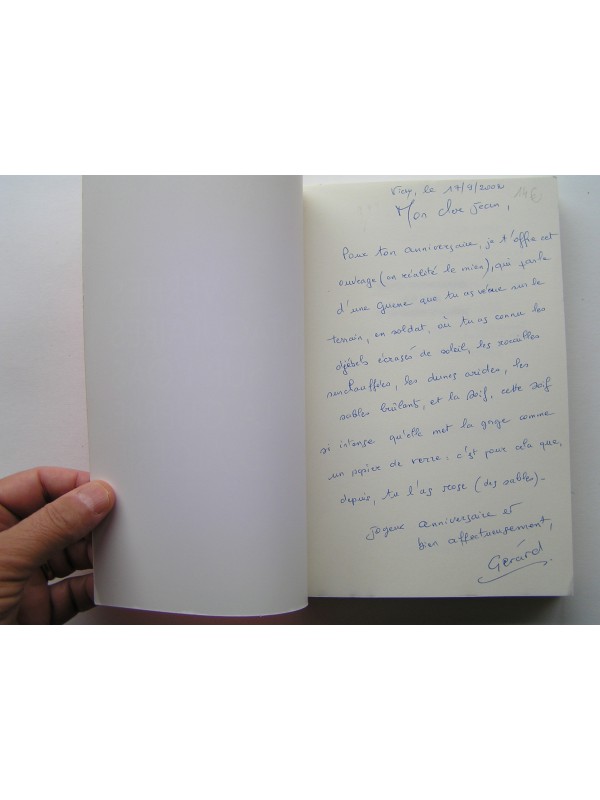 le 17/9/2002
Mon cher Jean,
Pour ton anniversaire, je t'offre cet
ouvrage (en réalité le mien), qui parle
d'une Guerre que tu as vécue sur le
terrain, en soldat, où tu as connu les
djebels écrasés de soleil, les rocailles
surchauffées, les dunes arides, les
sables brûlant, et la soif, cette soif
si intense qu'elle met la gorge comme
un papier de verre : c'est pour cela que,
depuis, tu l'as rose (des sables) -
joyeux anniversaire et
bien affectueusement,
Gérard